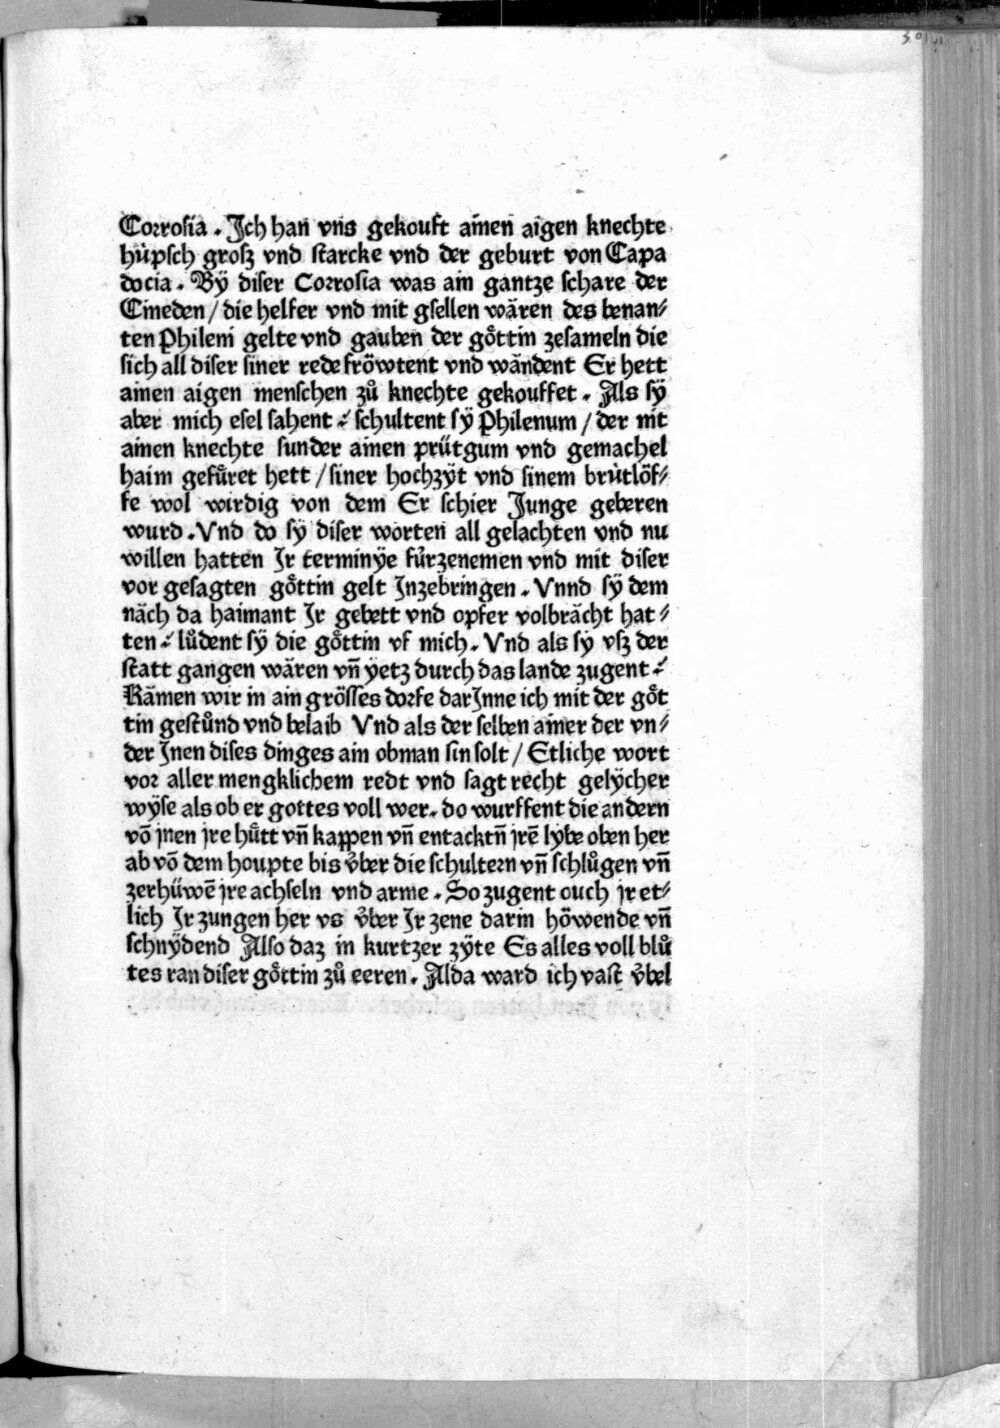 Corrosia . Jch han vns gekouft ainen aigen knechte
hüpsch grosz vnd starcke vnd der geburt von Capa
docia . Bÿ diser Corrosia was ain gantze schare der
Cineden / die helfer vnd mit gsellen wären des benan⸗
ten Phileni gelte vnd gauben der gȯttin zesameln die
sich all diser siner rede fröwtent vnd wändent Er hett
ainen aigen menschen zů knechte gekouffet . Als sÿ
aber mich esel sahent ⁓ schultent sÿ Philenum / der nit
ainen knechte sunder ainen prütgum vnd gemachel
haim gefůret hett / siner hochzÿt vnd sinem brütlöf⸗
fe wol wirdig von dem Er schier Junge geberen
wurd . Vnd do sÿ diser worten all gelachten vnd nu
willen hatten Jr terminÿe fürzenemen vnd mit diser
vor gesagten göttin gelt Jnzebringen . Vnnd sÿ dem
näch da haimant Jr gebett vnd opfer volbrächt hat⸗
ten ⁓ lůdent sÿ die göttin vf mich . Vnd als sÿ vsz der
statt gangen wären vn̄ yetz durch das lande zugent ⁓
Kämen wir in ain grösses dorfe darJnne ich mit der göt
tin gestůnd vnd belaib Vnd als der selben ainer der vn⸗
der Jnen dises dinges ain obman sin solt / Etliche wort
vor aller mengklichem redt vnd sagt recht gelÿcher
wÿse als ob er gottes voll wer . do wurffent die andern
võ jnen jre hütt vn̄ kappen vn̄ entacktn̄ jrē lÿbe oben her
ab võ dem houpte bis über die schultern vn̄ schlůgen vn̄
zerhüwē jre achseln vnd arme . So zugent ouch jr et⸗
lich Jr zungen her vs über Jr zene darin höwende vn̄
schnÿdend Also daz in kurtzer zÿte Es alles voll blů
tes ran diser göttin zů eeren . Alda ward ich vast übel